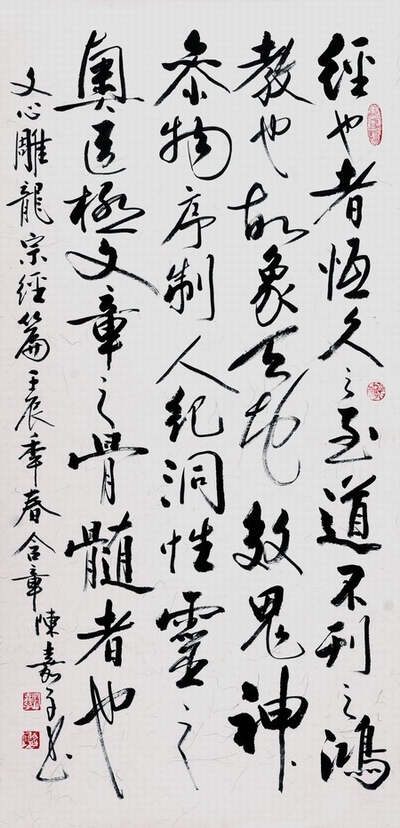 經也者恆久之至道不刊之鴻
教也故象天地效鬼神
參物序制人紀洞性靈之
奧區極文章之骨髓者也
文心雕龍宗經篇壬辰季春合章陳嘉子書